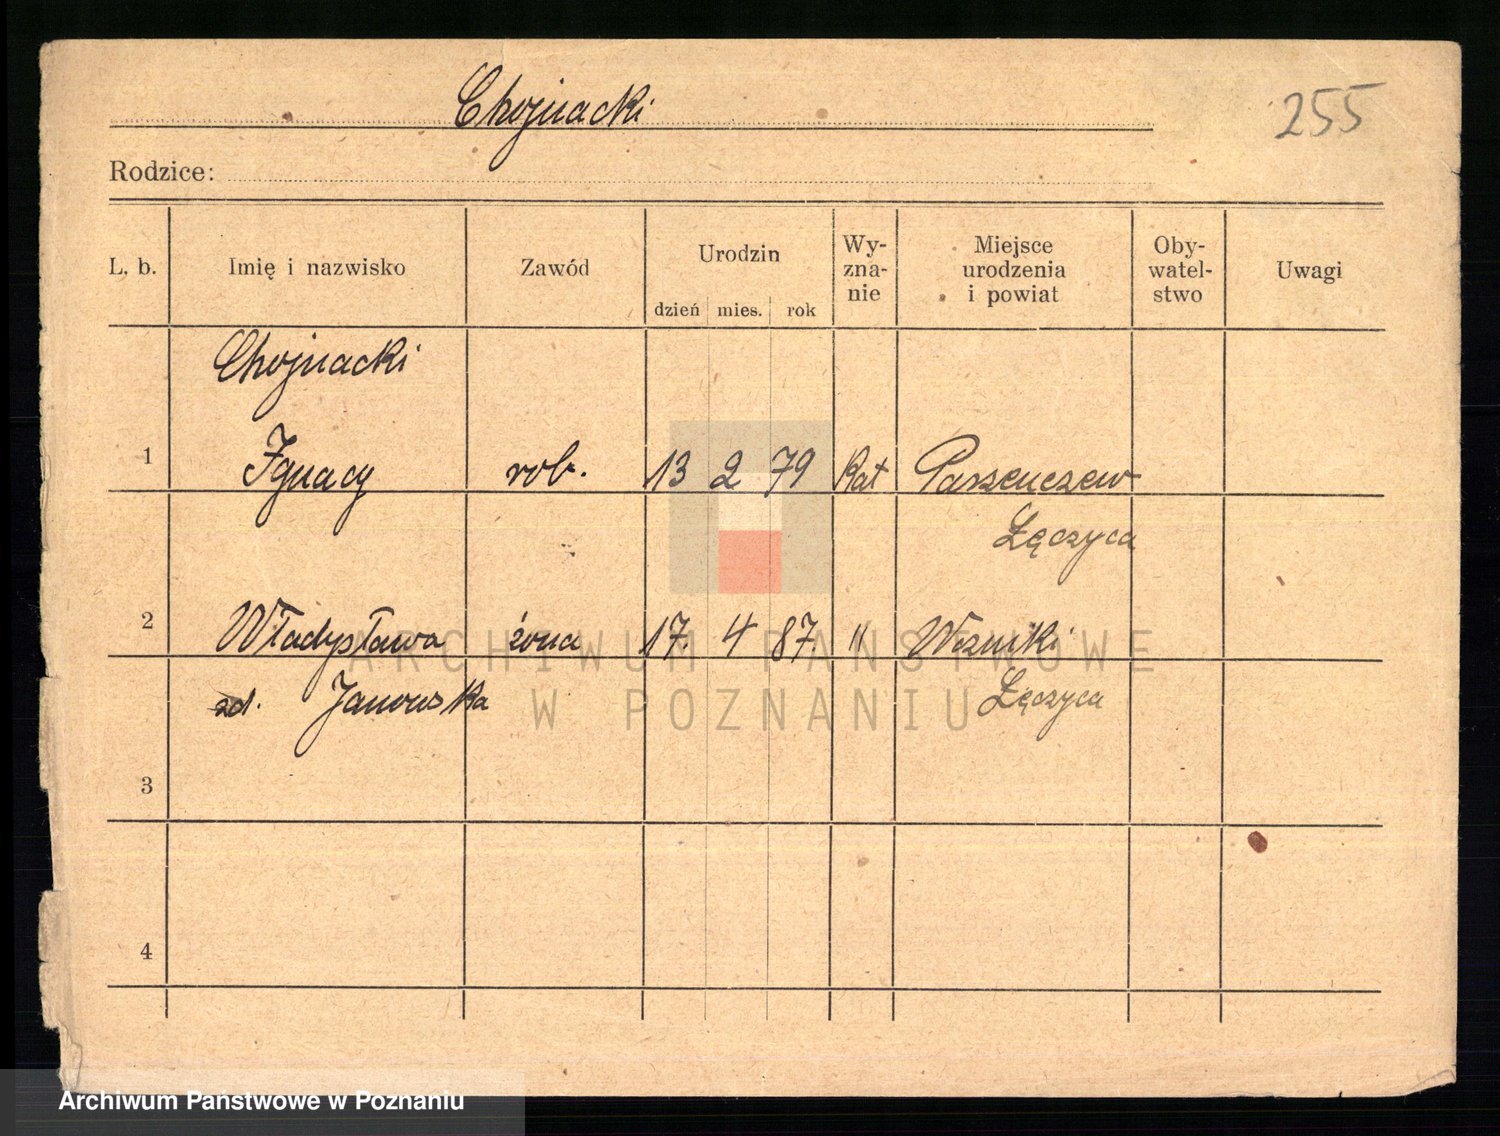 Chojnacki
255
Rodzice:
L. b. Imię i nazwisko Zawód Urodzin dzień mies. rok Wy-zna-nie Miejsce urodzenia i powiat Oby-watel-stwo Uwagi
Chojnacki
1 Ignacy rob. 13 2 79 Kat Parzenczew
Łęczyca
2 Władysława żona 17. 4 87. " Wozniki
zd. Janowska Łęczyca
3
4
ARCHIWUM PAŃSTWOWE
W POZNANIU
Archiwum Państwowe w Poznaniu